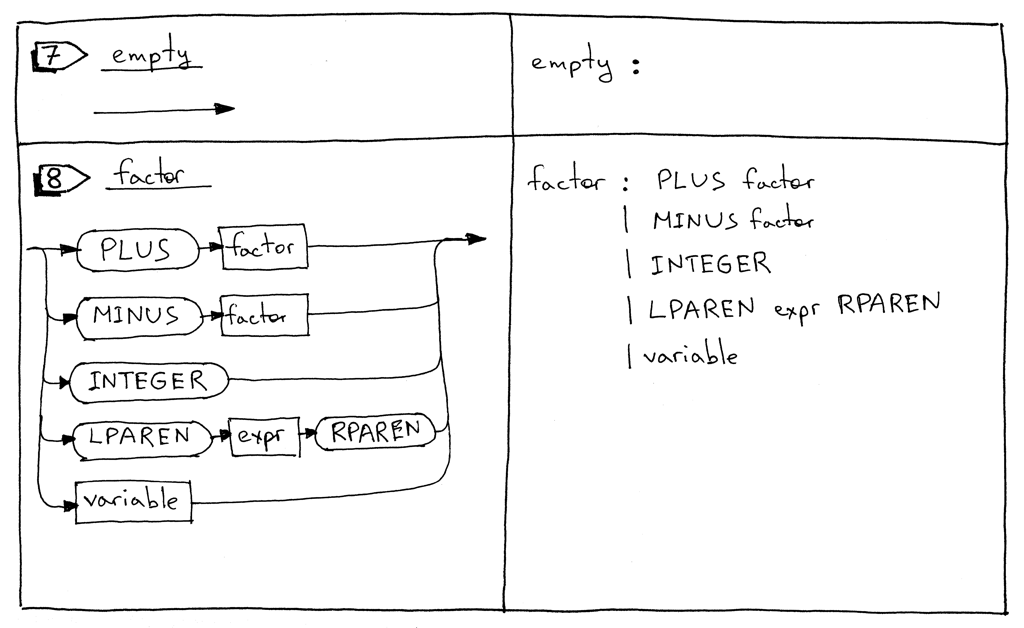 7 empty
empty :
8 factor
PLUS factor
MINUS factor
INTEGER
LPAREN expr RPAREN
variable
factor : PLUS factor
| MINUS factor
| INTEGER
| LPAREN expr RPAREN
| variable